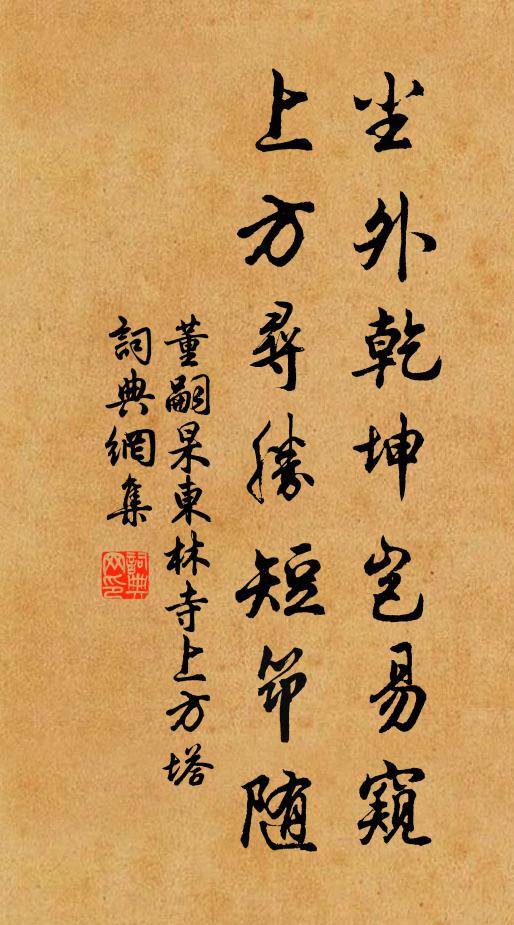 尘外乾坤岂易窺
上方尋勝短筇随
董嗣杲東林寺上方塔
詞典網集
詞典网印